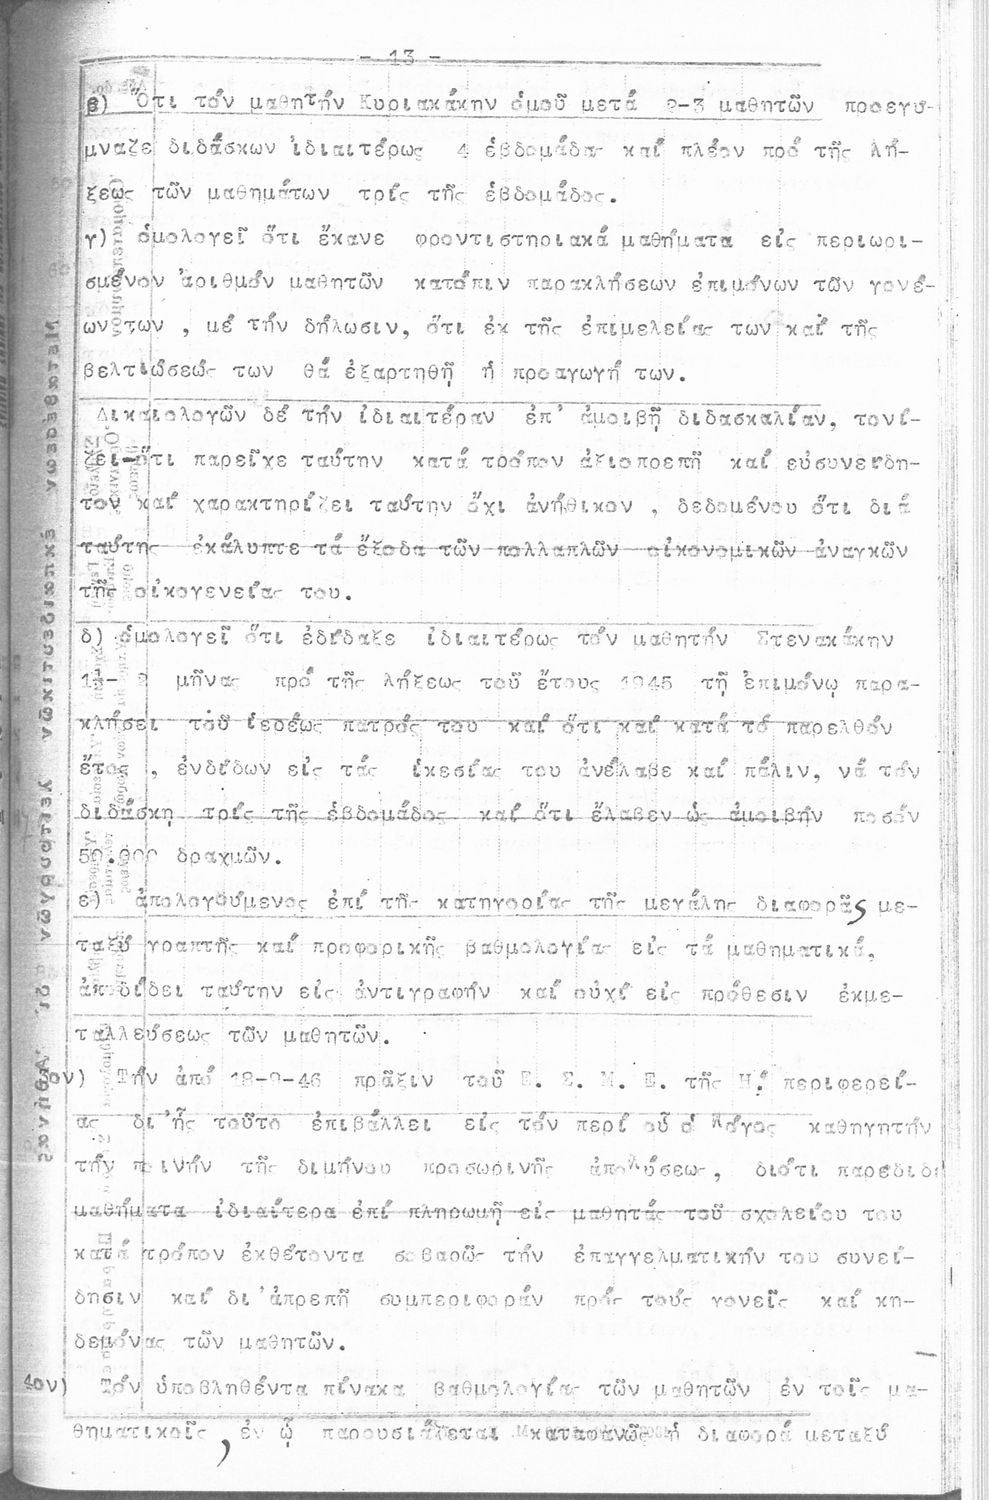 - 13 -
β) Ὅτι τόν μαθητήν Κυριακάκην ὁμοῦ μετά 2-3 μαθητῶν προεγυ-
μναζε διδάσκων ἰδιαιτέρως 4 ἑβδομάδας καί πλέον πρό τῆς λή-
ξεως τῶν μαθημάτων τρίς τῆς ἑβδομάδος.
γ) ὁμολογεῖ ὅτι ἔκανε φροντιστηριακά μαθήματα εἰς περιωρι-
σμένον ἀριθμόν μαθητῶν κατόπιν παρακλήσεων ἐπιμόνων τῶν γονέ-
ων των , μέ τήν δήλωσιν, ὅτι ἐκ τῆς ἐπιμελείας των καί τῆς
βελτιώσεώς των θά ἐξαρτηθῇ ἡ προαγωγή των.
Δικαιολογῶν δέ τήν ἰδιαιτέραν ἐπ' ἀμοιβῇ διδασκαλίαν, τονί-
ζει ὅτι παρεῖχε ταύτην κατά τρόπον ἀξιοπρεπῆ καί εὐσυνείδη-
τον καί χαρακτηρίζει ταύτην ὄχι ἀνήθικον , δεδομένου ὅτι διά
ταύτης ἐκάλυπτε τά ἔξοδα τῶν πολλαπλῶν οἰκονομικῶν ἀναγκῶν
τῆς οἰκογενείας του.
δ) ὁμολογεῖ ὅτι ἐδίδαξε ἰδιαιτέρως τόν μαθητήν Στενακάκην
1½- 2 μῆνας πρό τῆς λήξεως τοῦ ἔτους 1945 τῇ ἐπιμόνῳ παρα-
κλήσει τοῦ ἱερέως πατρός του καί ὅτι καί κατά τό παρελθόν
ἔτος , ἐνδίδων εἰς τάς ἱκεσίας του ἀνέλαβε καί πάλιν, νά τόν
διδάσκῃ τρίς τῆς ἑβδομάδος καί ὅτι ἔλαβεν ὡς ἀμοιβήν ποσόν
50.000 δραχμῶν.
ε) ἀπολογούμενος ἐπί τῆς κατηγορίας τῆς μεγάλης διαφορᾶς με-
ταξύ γραπτῆς καί προφορικῆς βαθμολογίας εἰς τά μαθηματικά,
ἀποδίδει ταύτην εἰς ἀντιγραφήν καί οὐχί εἰς πρόθεσιν ἐκμε-
ταλλεύσεως τῶν μαθητῶν.
ον) Τήν ἀπό 18-9-46 πρᾶξιν τοῦ Ε. Σ. Μ. Ε. τῆς Η! περιφερεί-
ας δι'ἧς τοῦτο ἐπιβάλλει εἰς τόν περί οὗ ὁ λόγος καθηγητήν
τήν ποινήν τῆς διμήνου προσωρινῆς ἀπολύσεως, διότι παρέδιδε
μαθήματα ἰδιαίτερα ἐπί πληρωμῇ εἰς μαθητάς τοῦ σχολείου του
κατά τρόπον ἐκθέτοντα σοβαρῶς τήν ἐπαγγελματικήν του συνεί-
δησιν καί δι'ἀπρεπῆ συμπεριφοράν πρός τούς γονεῖς καί κη-
δεμόνας τῶν μαθητῶν.
4ον) Τόν ὑποβληθέντα πίνακα βαθμολογίας τῶν μαθητῶν ἐν τοῖς μα-
θηματικοῖς, ἐν ᾧ παρουσιάζεται καταφανῶς ἡ διαφορά μεταξύ